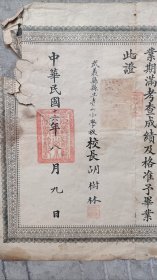 業期滿考查成績及格准予畢業
此證
武義縣縣立
小學校
校長胡樹林
中華民國
年八月九日